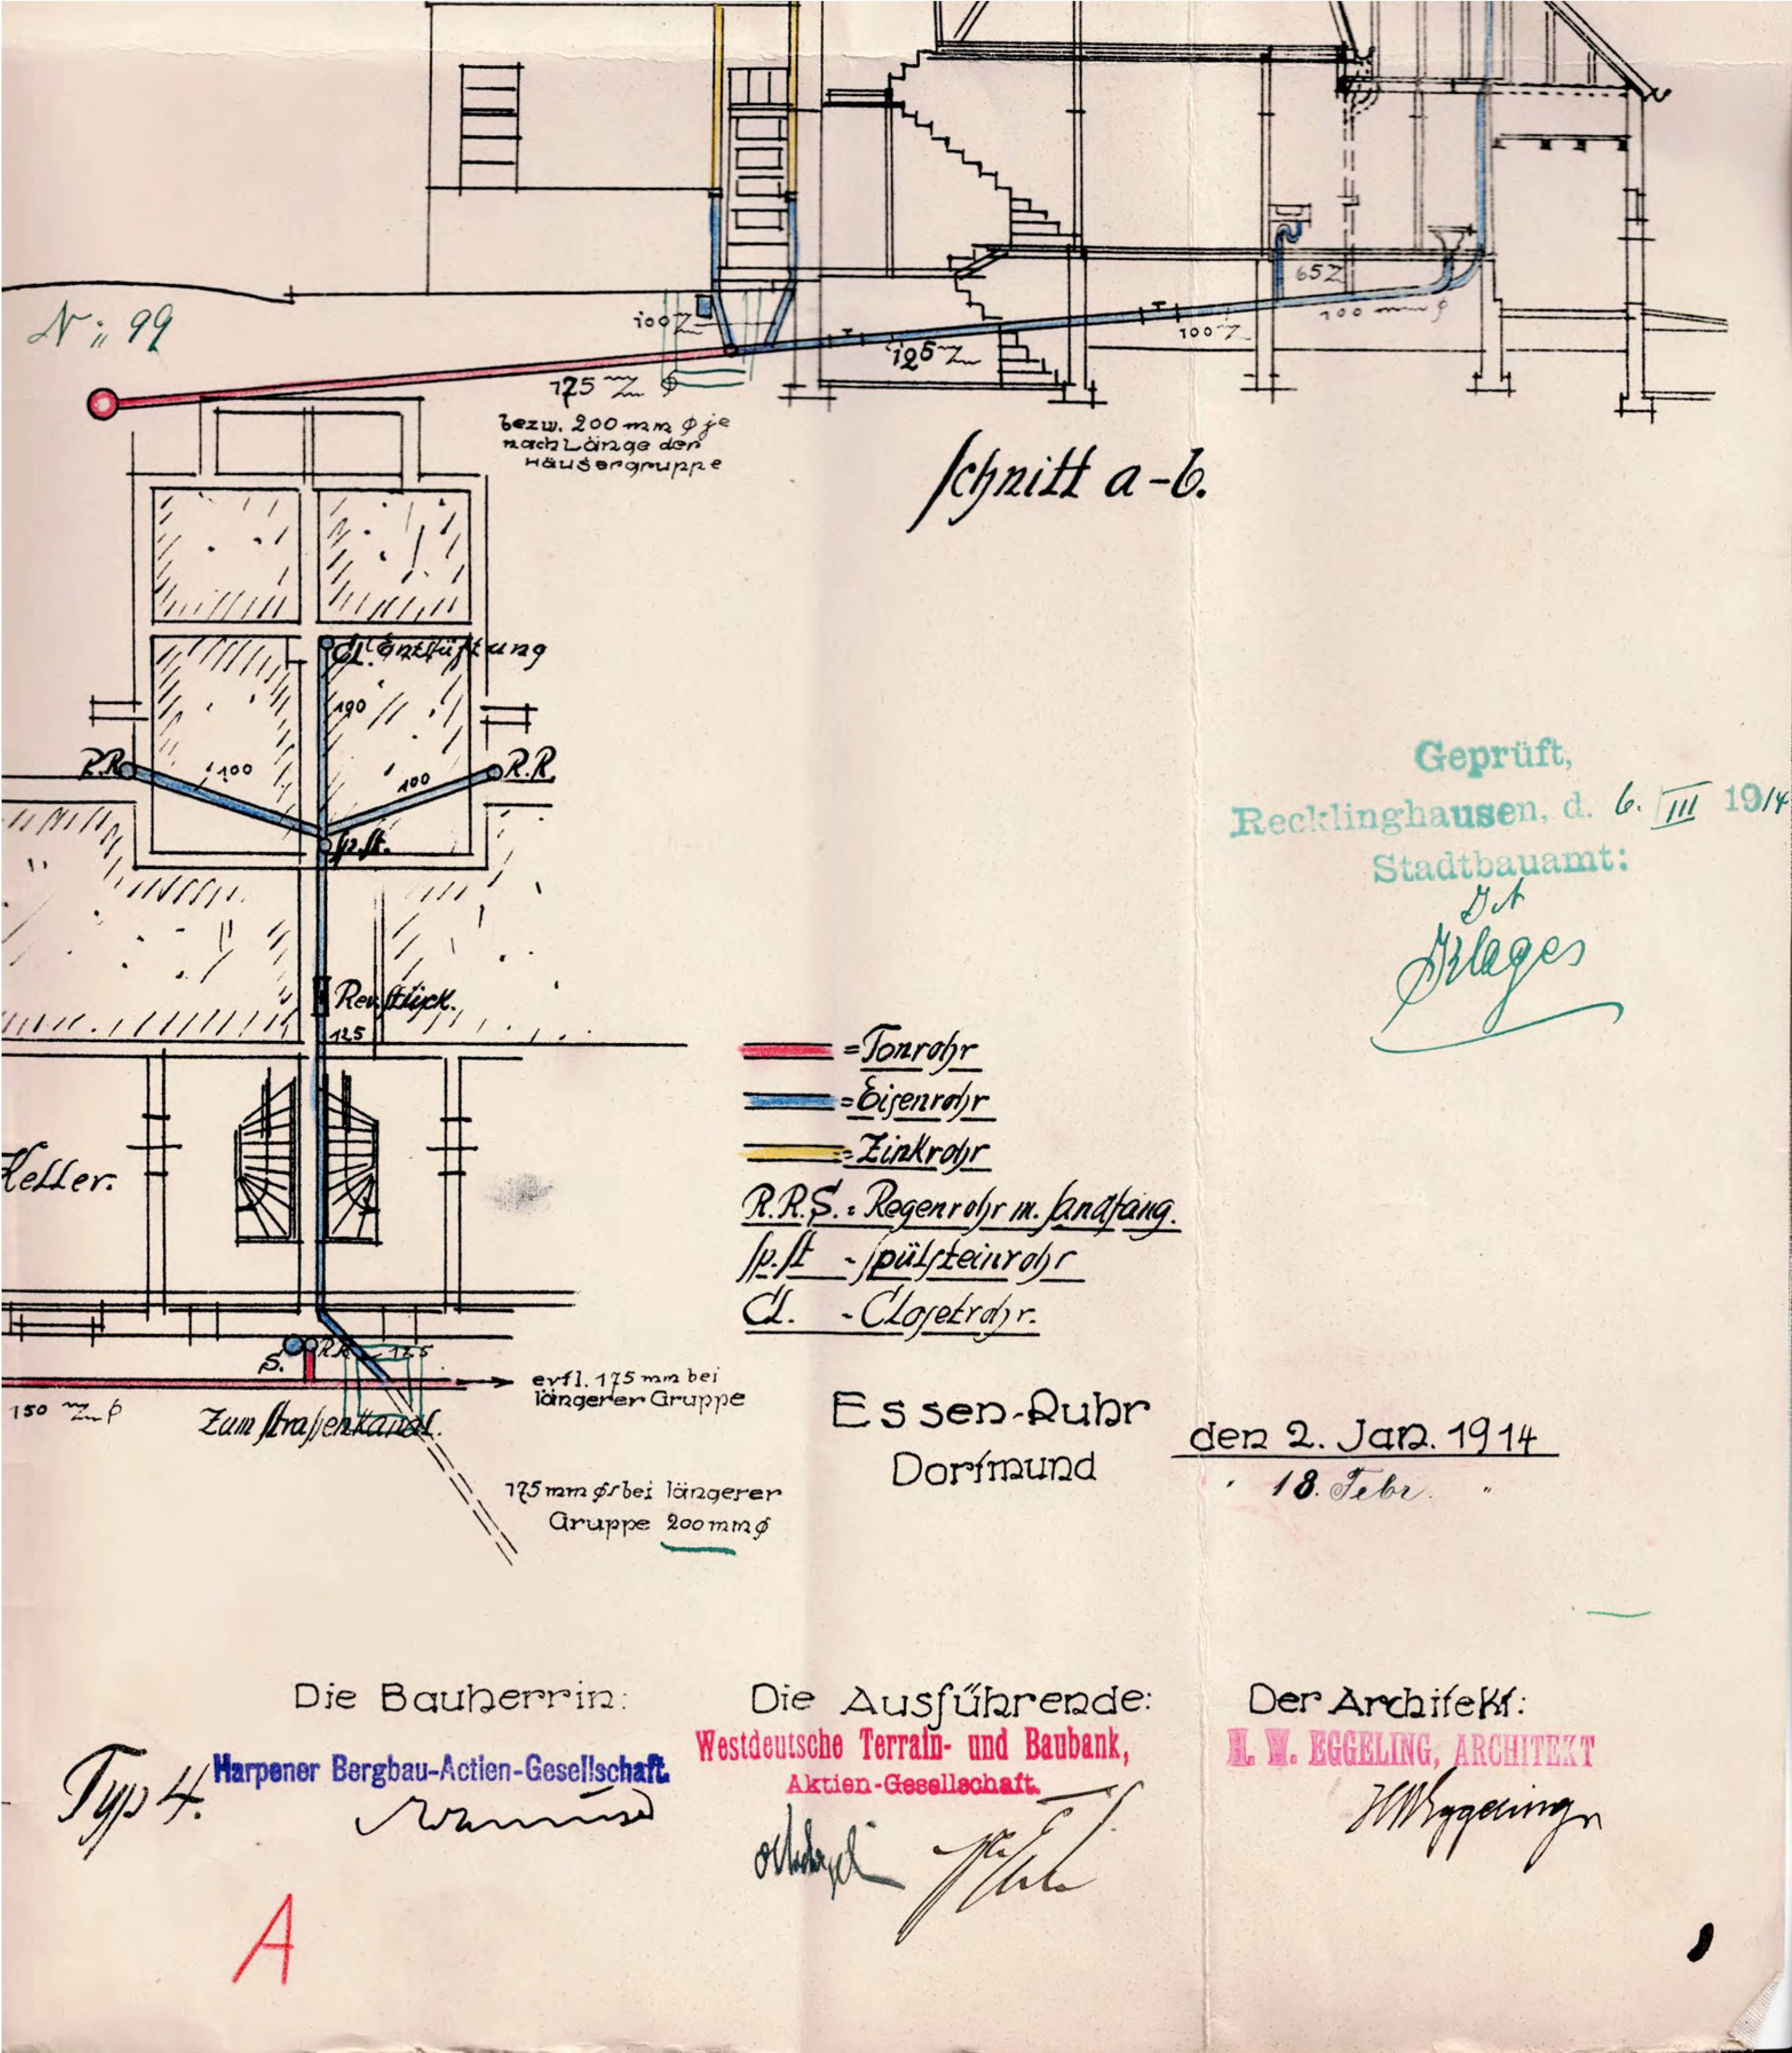 N: 99
100
65
100 mm ϕ
100
125
175 ϕ
bezw. 200 mm ϕ je
nach Länge der
Häusergruppe
Schnitt a-b.
Cl. Entlüftung
100
R.R.
100
100
R.R.
Sp.st.
Geprüft,
Recklinghausen, d. 6. III 1914
Stadtbauamt:
Klages
Rev. Stück.
125
= Tonrohr
= Eisenrohr
= Zinkrohr
R.R.S. = Regenrohr m. Sandfang.
Sp.st - Spülsteinrohr
Cl. - Closetrohr.
Keller.
S.
R.R.
125
150
erfl. 175 mm bei
längerer Gruppe
Zum Straßenkanal.
175 mm ϕ bei längerer
Gruppe 200 mm ϕ
Essen-Ruhr
Dortmund
den 2. Jan. 1914
" 18. Febr. "
Die Bauherrin:
Harpener Bergbau-Actien-Gesellschaft.
Typ 4.
Die Ausführende:
Westdeutsche Terrain- und Baubank,
Aktien-Gesellschaft.
Der Architekt:
H. W. EGGELING, ARCHITEKT
HWEggeling
A